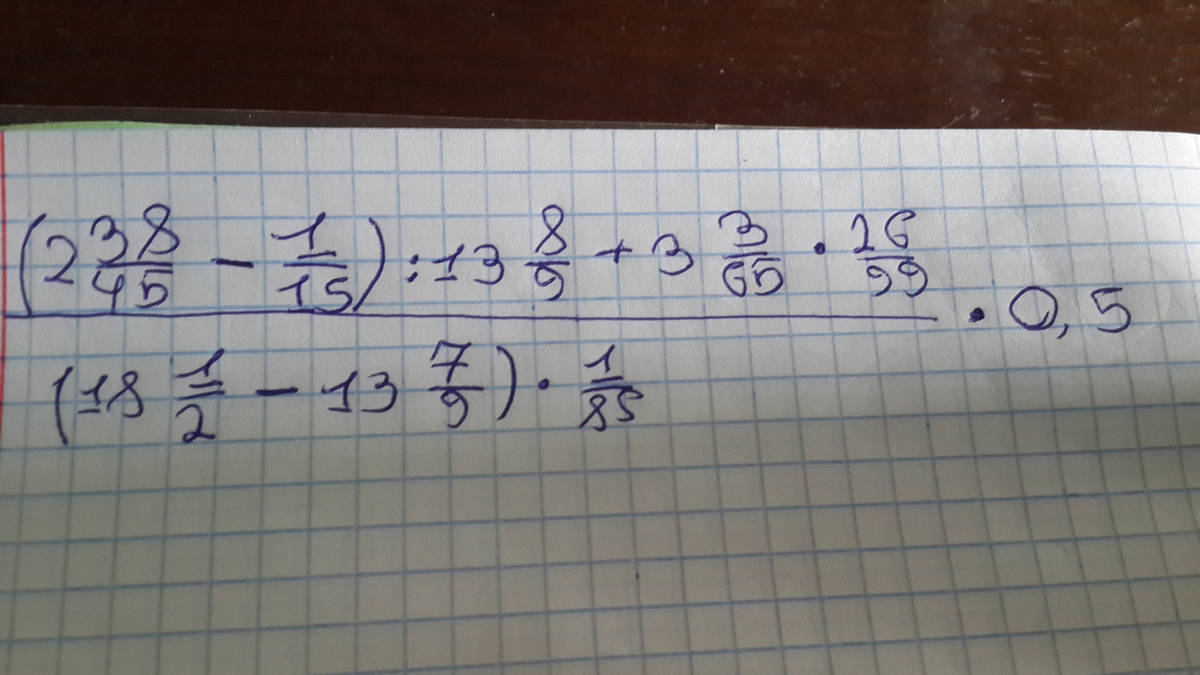 (2 38/45 - 1/15) : 13 8/9 + 3 3/65 · 26/99
(18 1/2 - 13 7/9) · 1/85
· 0,5